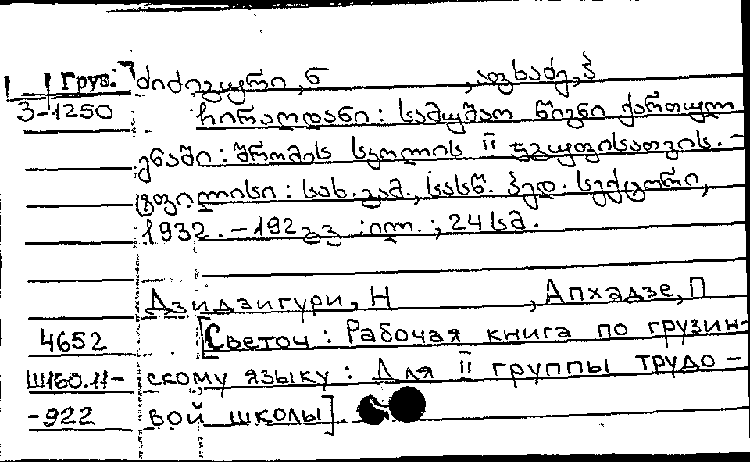 Груз. ძიძიგური, ნ , აფხაძე, პ
3-1250 ჩირაღდანი: სამუშაო წიგნი ქართულ
ენაში: შრომის სკოლის II ჯგუფისათვის. -
ტფილისი: სახ. გამ., სასწ. პედ. სექტორი,
1932. - 192 გვ :ილ. ; 24 სმ.
Дзидзигури, Н , Апхадзе, П
4652 [Светоч: Рабочая книга по грузин-
Ш160.11- скому языку: Для II группы трудо-
-922 вой школы].